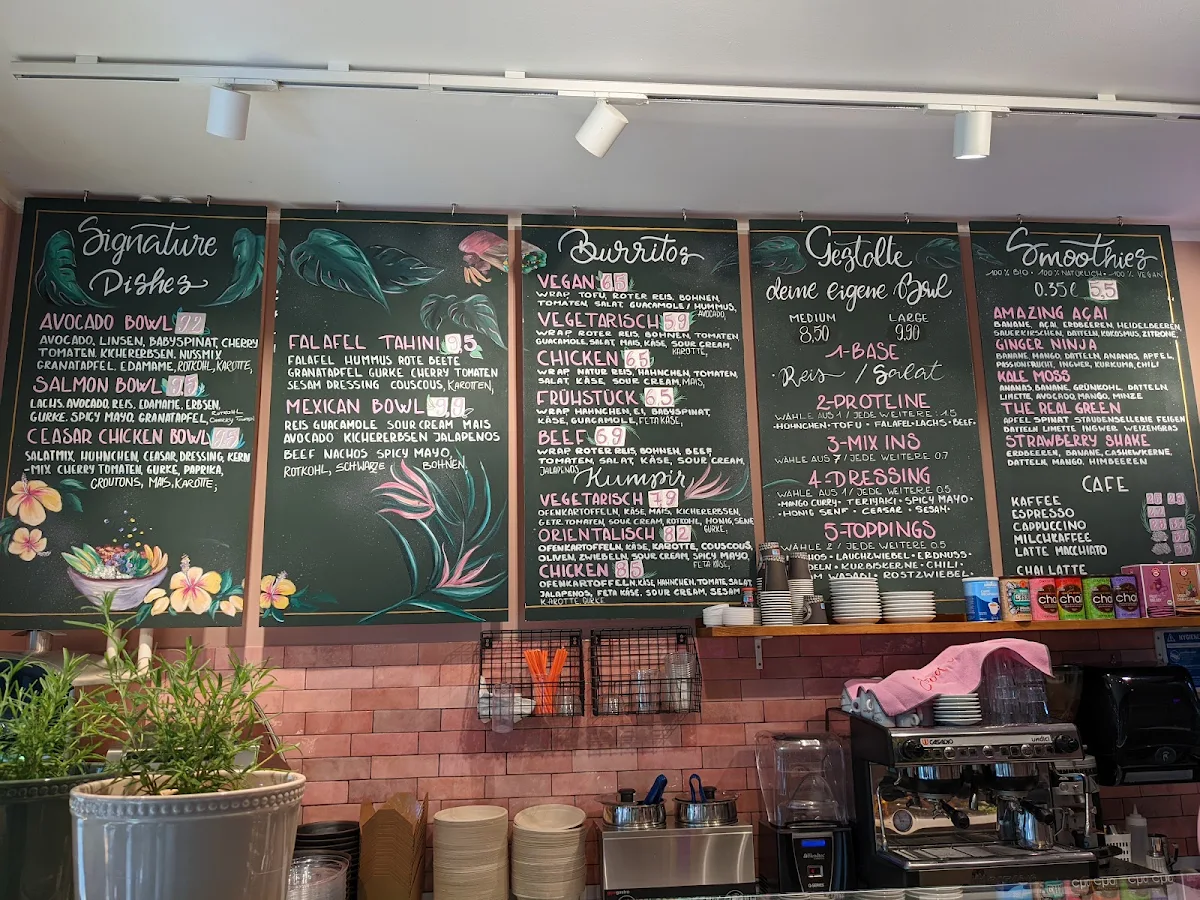 Signature
Dishes
AVOCADO BOWL
AVOCADO, LINSEN, BABYSPINAT, CHERRY
TOMATEN. KICHERERBSEN, NUSSMIX
GRANATAPFEL. EDAMAME, ROTKOHL, KAROTTE,
SALMON BOWL 9,5
LACHS, AVOCADO, REIS, EDAMAME, ERBSEN,
GURKE. SPICY MAYO, GRANATAPFEL,
CEASAR CHICKEN BOWL
SALATMIX, HÜHNCHEN, CEASAR DRESSING, KERN
-MIX CHERRY TOMATEN, GURKE, PAPRIKA,
CROUTONS, MAIS, KAROTTE,
FALAFEL TAHINI 9,5
FALAFEL HUMMUS ROTE BEETE
GRANATAPFEL GURKE CHERRY TOMATEN
SESAM DRESSING COUSCOUS, KAROTTEN,
MEXICAN BOWL 9,9
REIS GUACAMOLE SOUR CREAM MAIS
AVOCADO KICHERERBSEN JALAPENOS
BEEF NACHOS SPICY MAYO,
ROTKOHL, SCHWARZE BOHNEN,
Burritos
VEGAN 6,5
WRAP TOFU, ROTER REIS, BOHNEN,
TOMATEN, SALAT GUACAMOLE / HUMMUS,
AVOCADO,
VEGETARISCH 5,9
WRAP ROTER REIS, BOHNEN TOMATEN
GUACAMOLE, SALAT, MAIS, KÄSE, SOUR CREAM,
KAROTTE,
CHICKEN 6,5
WRAP NATUR REIS, HÄHNCHEN, TOMATEN,
SALAT, KÄSE, SOUR CREAM, MAIS,
FRÜHSTÜCK 6,5
WRAP HÄHNCHEN, EI, BABYSPINAT,
KÄSE, GUACAMOLE, FETA KÄSE,
BEEF 6,9
WRAP ROTER REIS, BOHNEN, BEEF,
TOMATEN, SALAT, KÄSE, SOUR CREAM,
JALAPENOS
Kumpir
VEGETARISCH 7,9
OFENKARTOFFELN, KÄSE, MAIS, KICHERERBSEN,
GETR. TOMATEN, SOUR CREAM, ROTKOHL, HONIG, SENF
GURKE,
ORIENTALISCH 8,2
OFENKARTOFFELN, KÄSE, KAROTTE, COUSCOUS,
OLIVEN, ZWIEBELN, SOUR CREAM, SPICY MAYO
FETA KÄSE,
CHICKEN 8,5
OFENKARTOFFELN, KÄSE, HÄHNCHEN, TOMATE, SALAT,
JALAPENOS, FETA KÄSE, SOUR CREAM, SESAM
KAROTTE GURKE
Gestalte
deine eigene Bowl
MEDIUM LARGE
8,50 9,90
1-BASE
Reis / Salat
2-PROTEINE
WÄHLE AUS 1 / JEDE WEITERE 1.5
•HÜHNCHEN•TOFU•FALAFEL•LACHS•BEEF•
3-MIX INS
WÄHLE AUS 7 / JEDE WEITERE 0.7
4-DRESSING
WÄHLE AUS 1 / JEDE WEITERE 0.5
•MANGO CURRY• TERIYAKI• SPICY MAYO•
•HONIG SENF • CEASAR • SESAM•
5-TOPPINGS
WÄHLE 2 / JEDE WEITERE 0.5
•LAUCHZWIEBEL•ERDNUSS•
•KURBISKERNE•CHILI•
WASABI• RÖSTZWIEBEL•
Smoothies
100% BIO • 100% NATÜRLICH • 100% VEGAN
0.35 l 5,5
AMAZING AÇAI
BANANE, AÇAI, ERDBEEREN, HEIDELBEEREN
SAUERKIRSCHEN, DATTELN, KOKOSMUS, ZITRONE
GINGER NINJA
BANANE, MANGO, DATTELN, ANANAS, APFEL,
PASSIONFRUCHT, INGWER, KURKUMA, CHILI
KALE MOSS
ANANAS, BANANE, GRÜNKOHL, DATTELN,
LIMETTE, AVOCADO, MANGO, MINZE
THE REAL GREEN
APFEL SPINAT STAUDENSELLERIE FEIGEN
DATTELN LIMETTE INGWER WEIZENGRAS
STRAWBERRY SHAKE
ERDBEEREN, BANANE, CASHEWKERNE,
DATTELN, MANGO, HIMBEEREN
CAFE
KAFFEE
ESPRESSO
CAPPUCCINO
MILCHKAFFEE
LATTE MACCHIATO
CHAI LATTE
CASADIO
undici